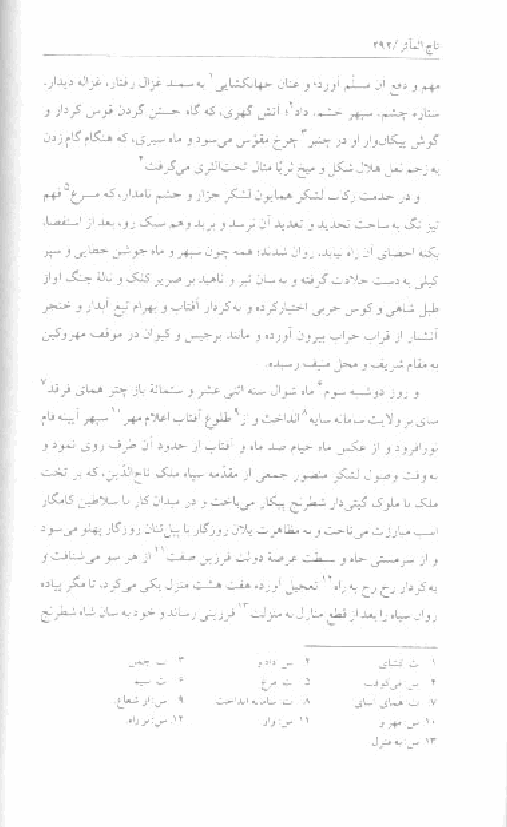 تاج المآثر / ۳۹۲
مهم و دفع آن مسلّم آورد؛ و عنان جهانگشایی۱ به سمند غزال رفتار، غزاله دیدار،
ستاره چشم، سپهر حشم، داد۲؛ آتش گهری، که گاه جستن گردن قوس کردار و
گوش پیکان‌وار او در چنبر۳ چرخ مقوّس می‌سود و ماه سیری، که هنگام گام زدن
به زخم نعل هلال شکل و میخ ثریّا مثال تحت‌الثری می‌گرفت۴
و در خدمت رکاب لشکر همایون لشکر جرّار و حشم نامدار، که مرغ۵ فهم
تیز تک به ساحت تحدید و تعدید آن نرسد و برید وهم سبک رو، بعد از استقصا،
بکنه احصای آن راه نیابد، روان شدند؛ همه چون سپهر و ماه جوشن خطایی و سپر
گیلی به دست جلادت گرفته و به سان تیر و ناهید بر صریر کلک و نالهٔ چنگ آواز
طبل شاهی و کوس حربی اختیار کرده و به کردار آفتاب و بهرام تیغ آبدار و خنجر
آتشبار از قراب حراب بیرون آورده و مانند برجیس و کیوان در موقف
به مقام شریف و محل منیف رسیده.
و روز دوشنبه سوم۶ ماه شوال سنه اثنی عشر و ستمائة باز چتر همای فر۷
سای بر ولایت سامانه سایه۸ انداخت و از۹ طلوع آفتاب اعلام مهر۱۰ سپهر آیینه فام
نورافزود و از عکس ماه خیام صد ماه و آفتاب از حدود آن طرف روی نمود و
به وقت وصول لشکر منصور جمعی از مقدّمه سپاه ملک تاج‌الدّین، که بر تخت
ملک با ملوک گیتی‌دار شطرنج پیکار می‌باخت و در میدان کار با سلاطین کامگار
اسب مبارزت می‌تاخت و به مظاهرت یلان روزگار با پیل‌تنان روزگار پهلو می‌سود
و از سرمستی جاه و بسطت عرصهٔ دولت فرزین صفت۱۱ از هر سو می‌شتافت و
به کردار رخ رخ به راه۱۲ تعجیل آورده، هفت هشت منزل یکی می‌کرد، تا مگر پیاده
روان سپاه را بعد از قطع منازل به منزلت۱۳ فرزینی رساند و خود به سان شاه شطرنج
۱. ت: گشای
۲. س: داد و
۴. س: می‌کوفت
۵. ت: مرغ
۷. ت: همای آسای
۸. ت: سامانه انداخت
۹. س: از شعاع.
۱۰. س: مهر و
۱۱. س: وار
۱۲. س: بر راه.
۱۳. س: به منزل